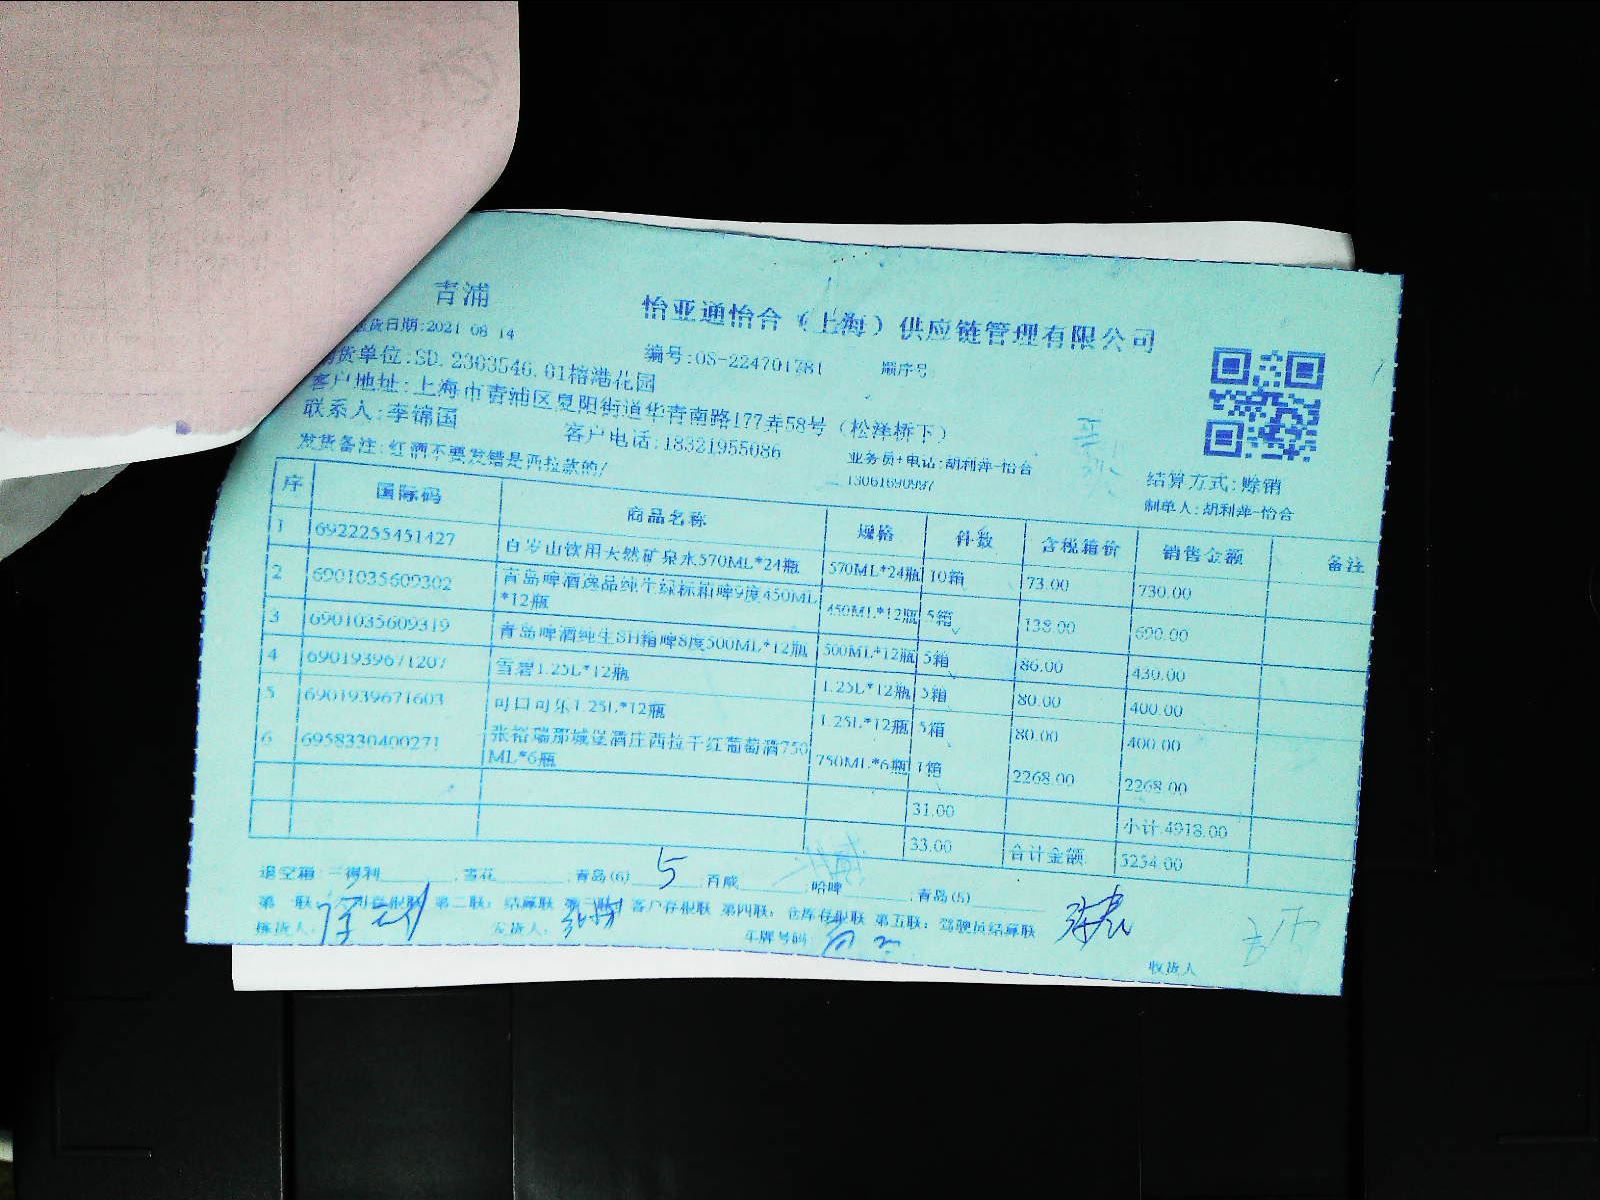 青浦
怡亚通怡合（上海）供应链管理有限公司
货日期:2021 08 14
编号:OS-224701781 顺序号
货单位:SD.2303546.01榕港花园
客户地址:上海市青浦区夏阳街道华青南路177弄58号（松泽桥下）
联系人:李锦国 客户电话:18321955086
业务员+电话:胡利萍-怡合
13061690997
发货备注:红酒不要发错是西拉款的/
结算方式:赊销
制单人:胡利萍-怡合
序 国际码 商品名称 规格 件数 含税箱价 销售金额 备注
1 6922255451427 百岁山饮用天然矿泉水570ML*24瓶 570ML*24瓶 10箱 73.00 730.00
2 6901035609302 青岛啤酒逸品纯生绿标箱啤9度450ML*12瓶 450ML*12瓶 5箱 138.00 690.00
3 6901035609319 青岛啤酒纯生SH箱啤8度500ML*12瓶 500ML*12瓶 5箱 86.00 430.00
4 6901939671207 雪碧1.25L*12瓶 1.25L*12瓶 5箱 80.00 400.00
5 6901939671603 可口可乐1.25L*12瓶 1.25L*12瓶 5箱 80.00 400.00
6 6958330400271 张裕瑞那城堡酒庄西拉干红葡萄酒750ML*6瓶 750ML*6瓶 1箱 2268.00 2268.00
31.00 小计:4918.00
33.00 合计金额 5254.00
退空箱 三得利 雪花 青岛(6) 5 百威 哈啤 青岛(5)
第一联: 存根联 第二联: 结算联 第三联 客户存根联 第四联: 仓库存根联 第五联: 驾驶员结算联
发货人: 车牌号码: 收货人